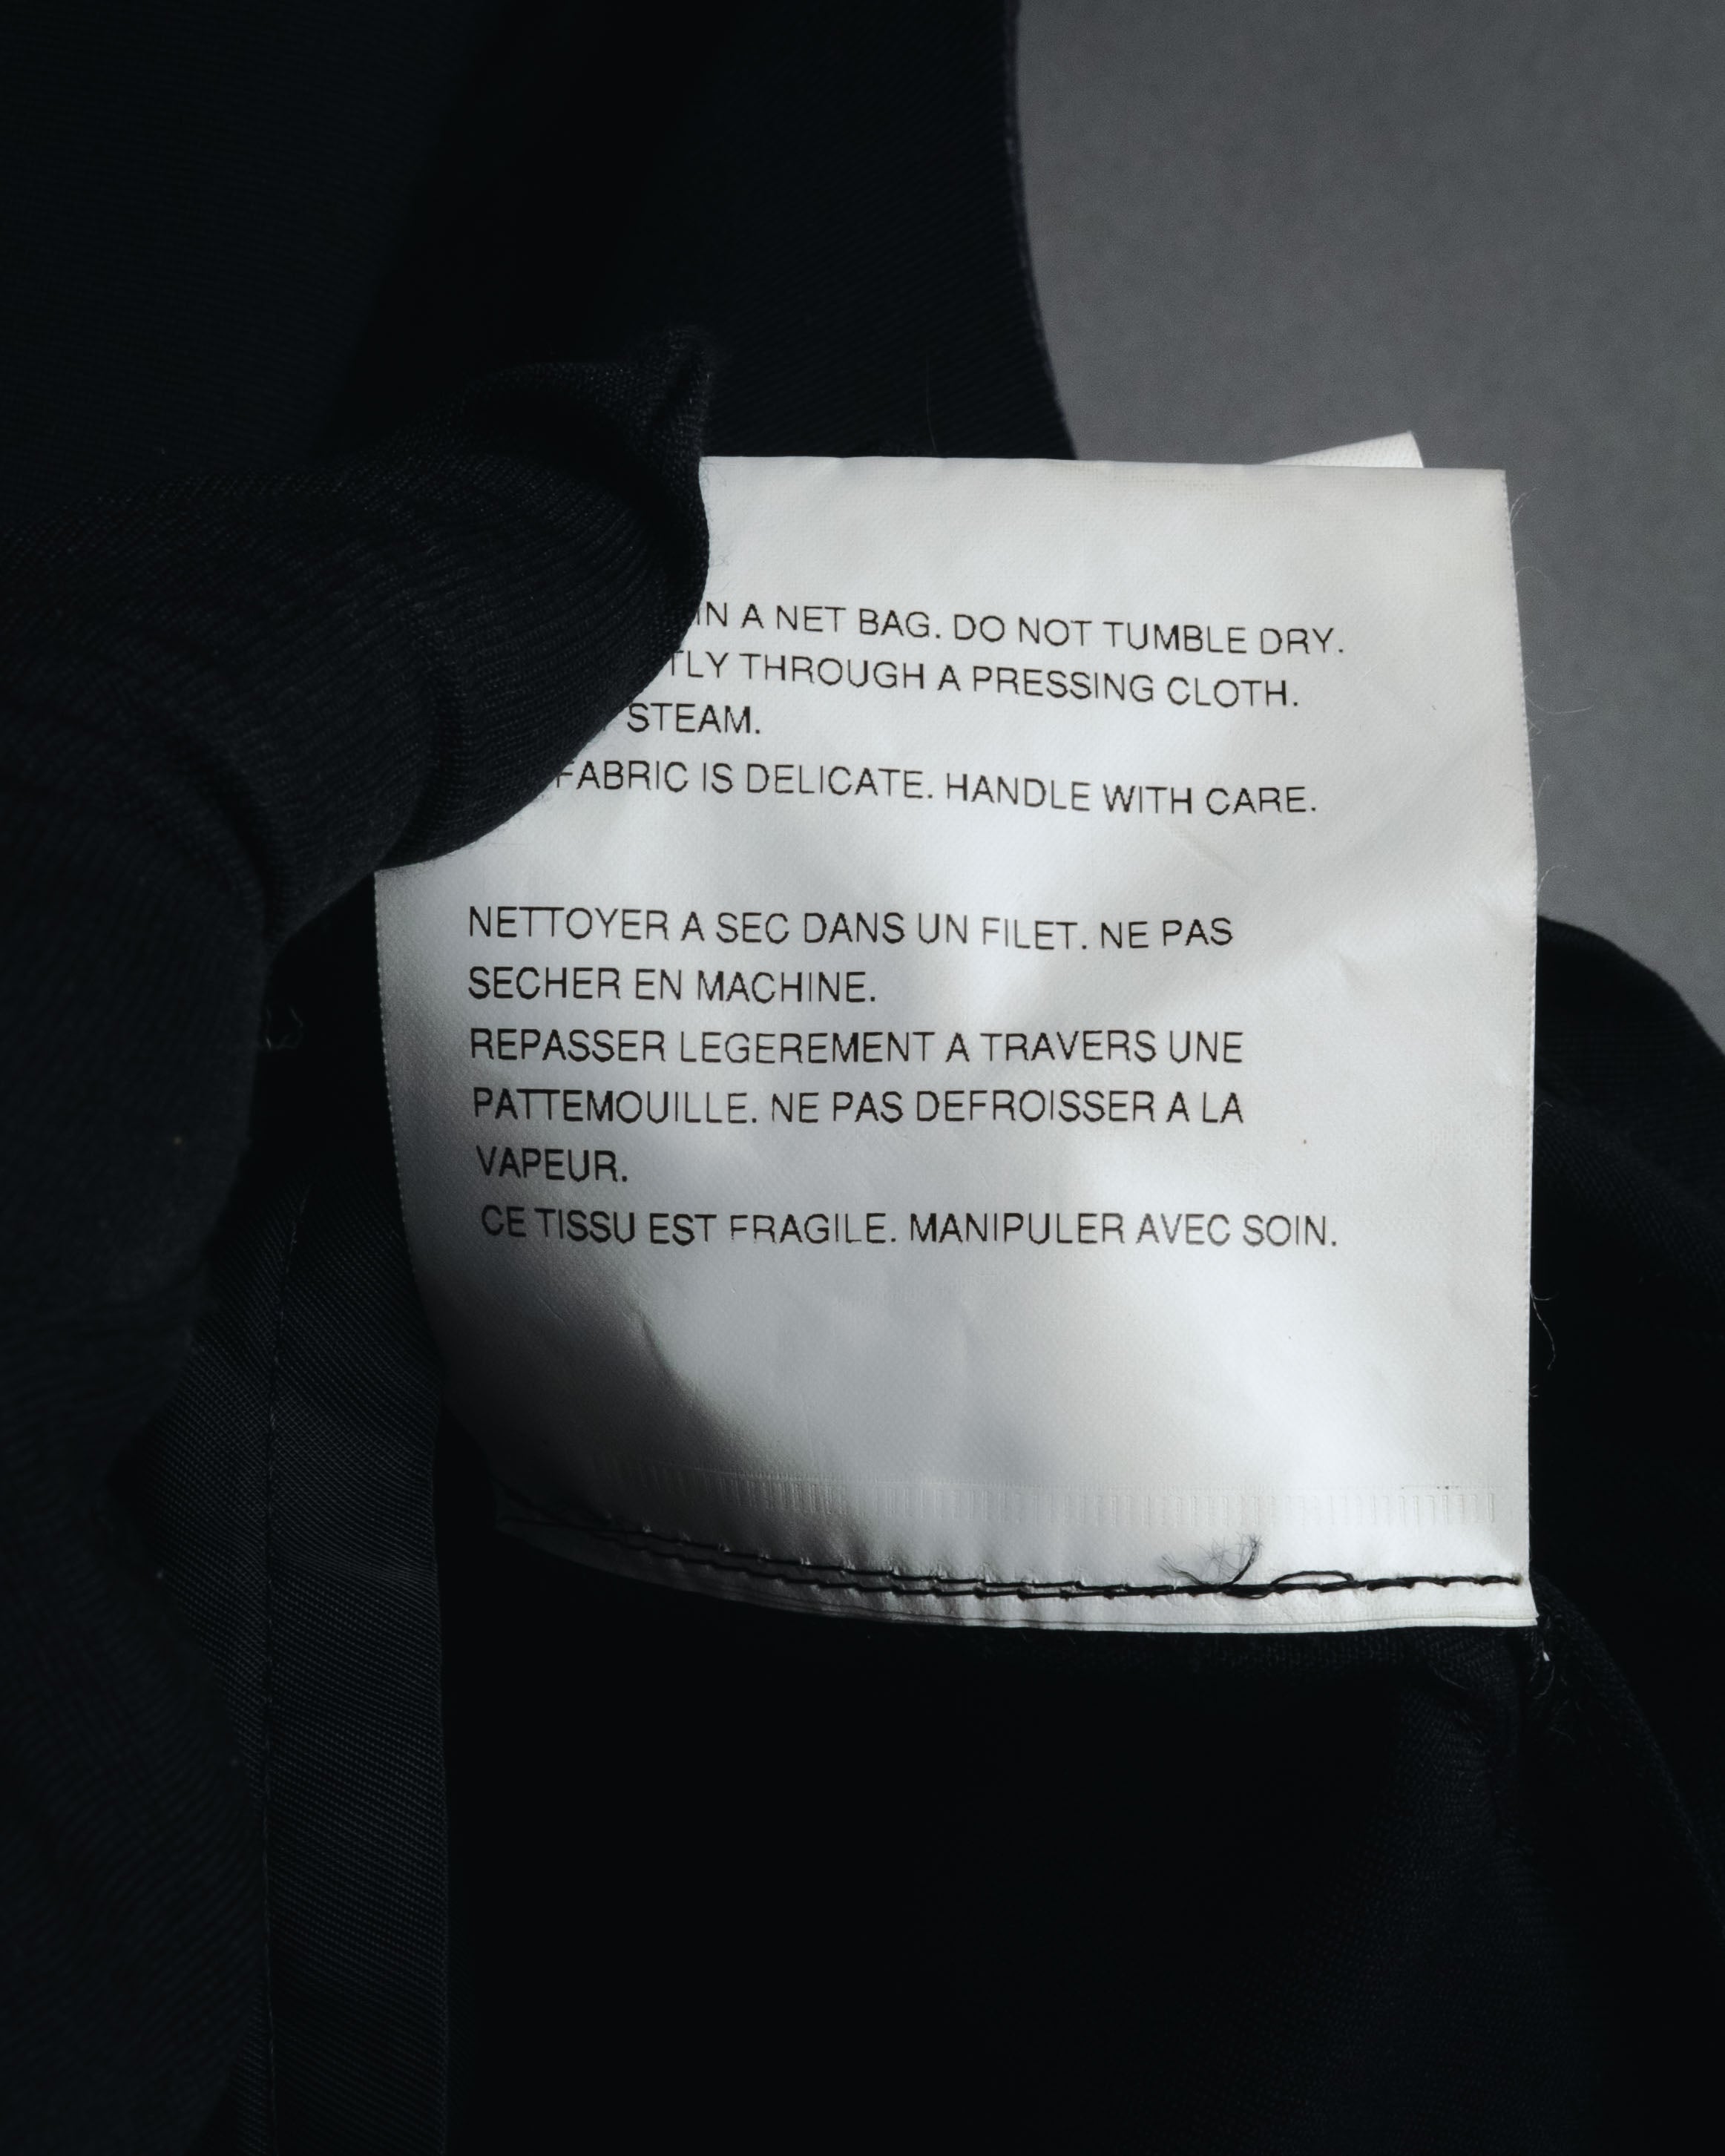 IN A NET BAG. DO NOT TUMBLE DRY.
THROUGH A PRESSING CLOTH.
STEAM.
FABRIC IS DELICATE. HANDLE WITH CARE.
NETTOYER A SEC DANS UN FILET. NE PAS
SECHER EN MACHINE.
REPASSER LEGEREMENT A TRAVERS UNE
PATTEMOUILLE. NE PAS DEFROISSER A LA
VAPEUR.
CE TISSU EST FRAGILE. MANIPULER AVEC SOIN.